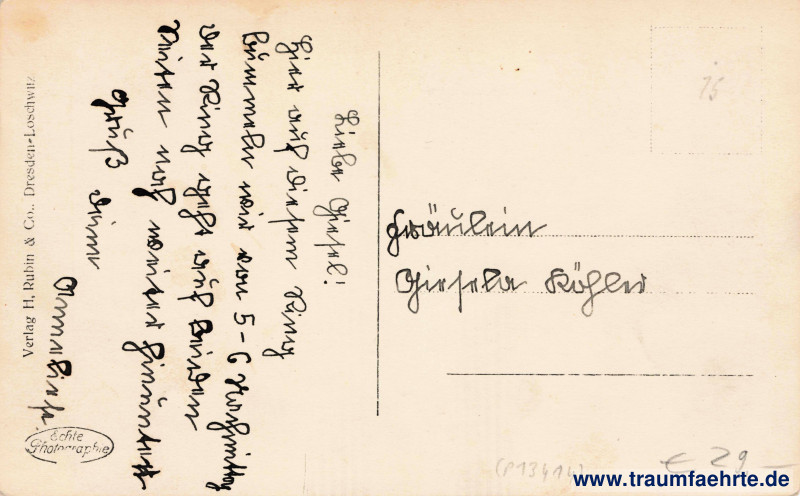 Liebe Giesel!
Hier auf diesem Ring
bummeln wir von 5-6 Nachmittag
der Ring geht auf beiden
Seiten noch weiter
Gruß deine
Anneliese
Fräulein
Giesela Köhler
15
Verlag H. Rubin & Co., Dresden-Loschwitz
Echte
Photographie
(P13414)
€ 29-
www.traumfaehrte.de